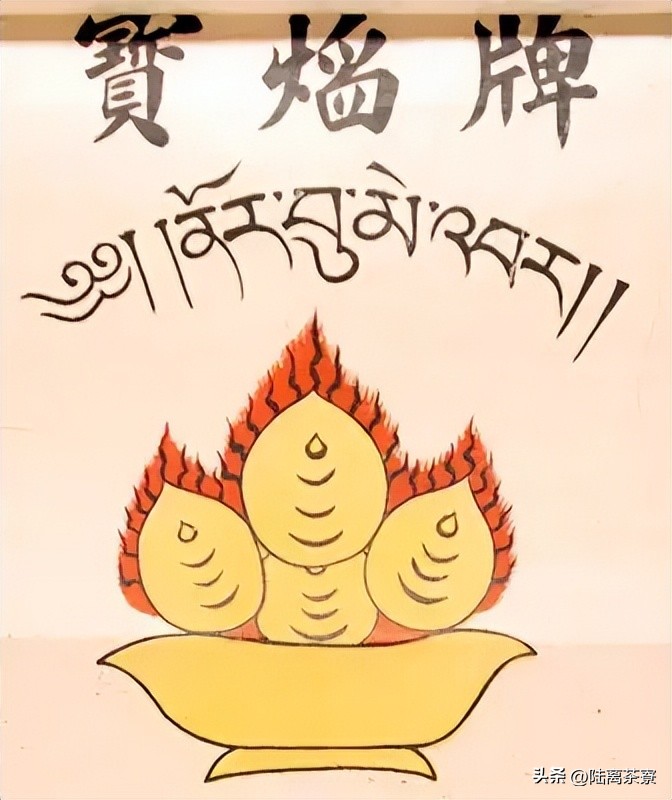 寶熖牌
༄༅། །ནོར་བུ་མེ་འབར། །
头条 @陆离茶寮